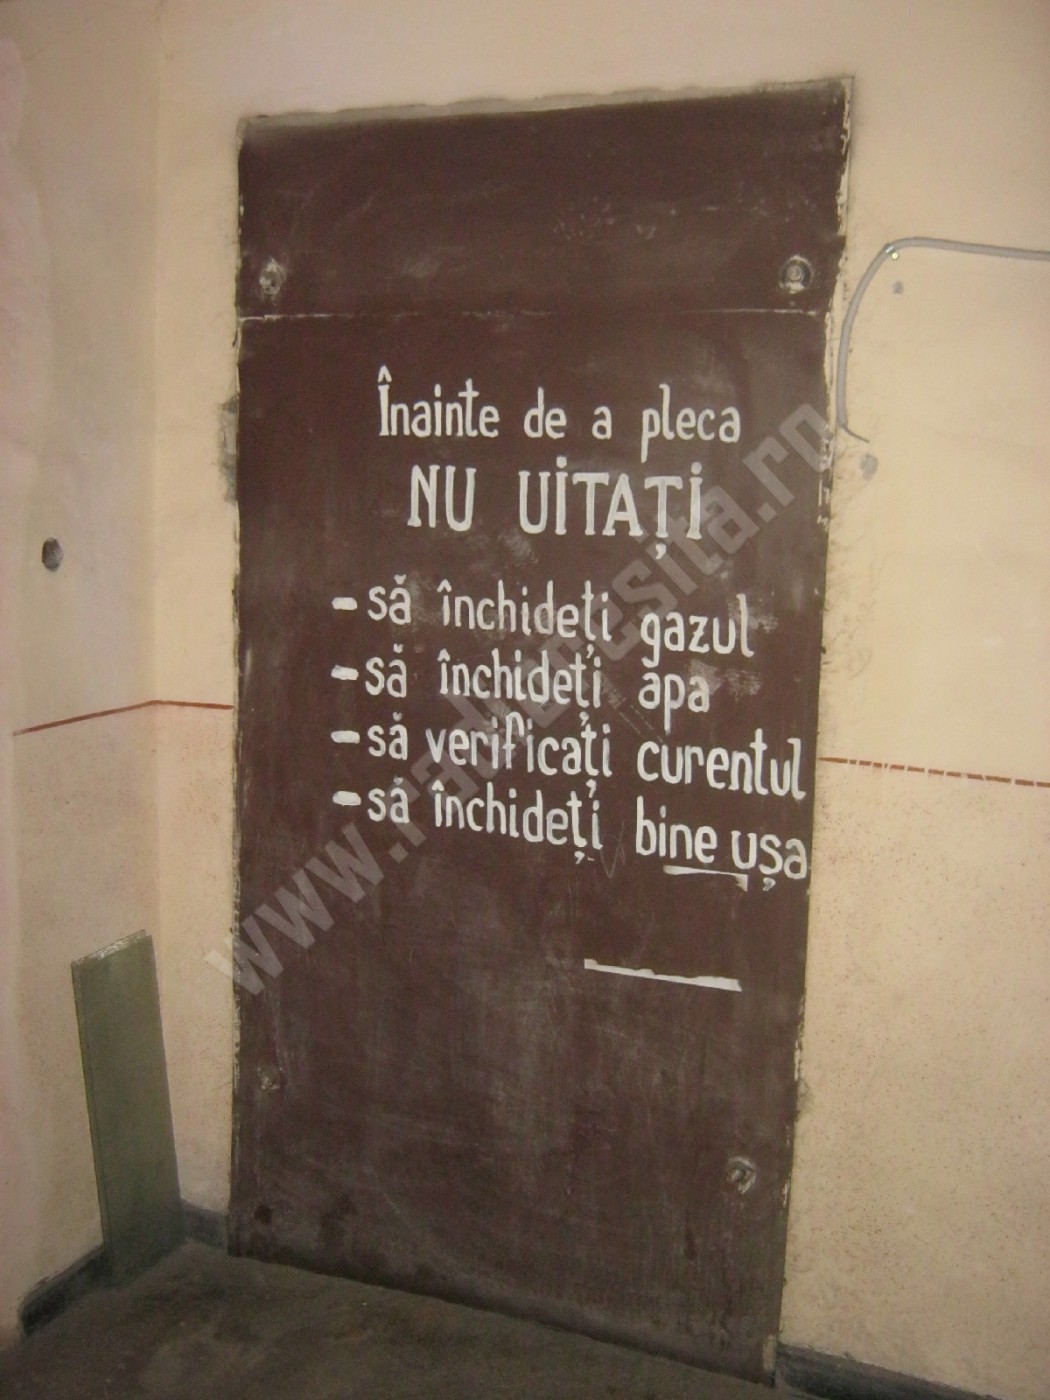 Înainte de a pleca
NU UITAȚI
- să închideți gazul
- să închideți apa
- să verificați curentul
- să închideți bine ușa
www.radiocesita.ro